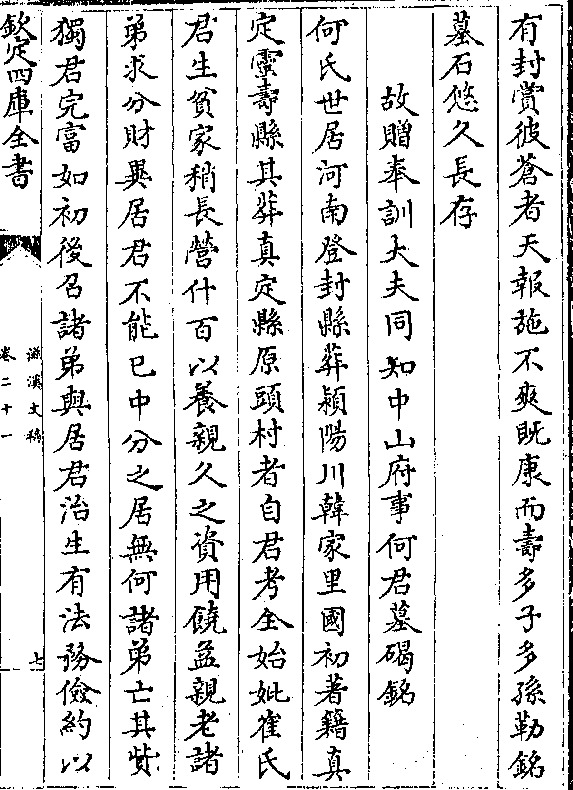 有封賞彼蒼者天報施不爽既康而壽多子多孫勒銘
墓石悠久長存
故贈奉訓大夫同知中山府事何君墓碣銘
何氏世居河南登封縣葬潁陽川韓家里國初著籍真
定靈壽縣其葬真定縣原頭村者自君考全始妣崔氏
君生貧家稍長營什百以養親久之資用饒益親老諸
弟求分財異居君不能已中分之居無何諸弟亡其貲
獨君完富如初後召諸弟與居君治生有法務儉約以
欽定四庫全書
滋溪文稿
卷二十一
七